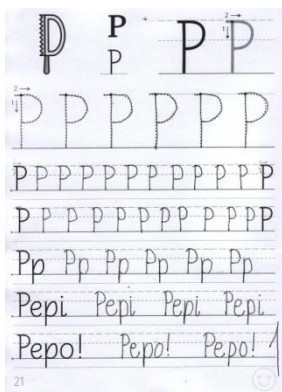 P
P
P P
2
1
2
1
P P P P P P
P P P P P P P P P P P P P P
P P P P P P P P P P P P P
Pp Pp Pp Pp Pp Pp
Pepi Pepi Pepi Pepi
Pepo! Pepo! Pepo!
21